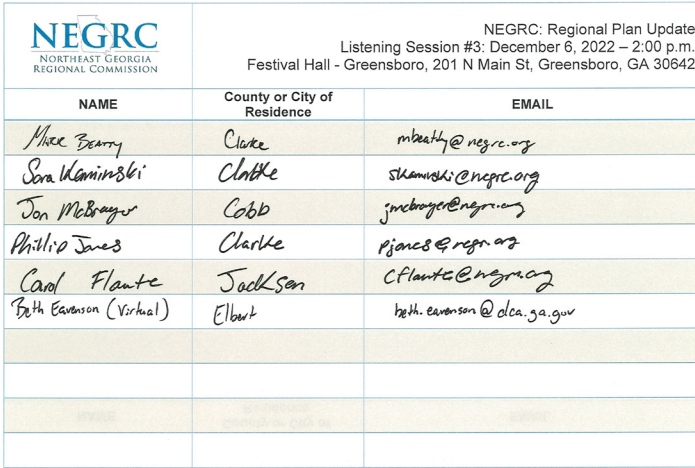 NEGRC
NORTHEAST GEORGIA
REGIONAL COMMISSION
NEGRC: Regional Plan Update
Listening Session #3: December 6, 2022 – 2:00 p.m.
Festival Hall - Greensboro, 201 N Main St, Greensboro, GA 30642
NAME County or City of Residence EMAIL
Mark Beatty Clarke mbeatty@negrc.org
Sara Kaminski Clarke skaminski@negrc.org
Jon McBrayer Cobb jmcbrayer@negrc.org
Phillip Jones Clarke pjones@negrc.org
Carol Flaute Jackson cflaute@negrc.org
Beth Eavenson (Virtual) Elbert beth.eavenson@dca.ga.gov